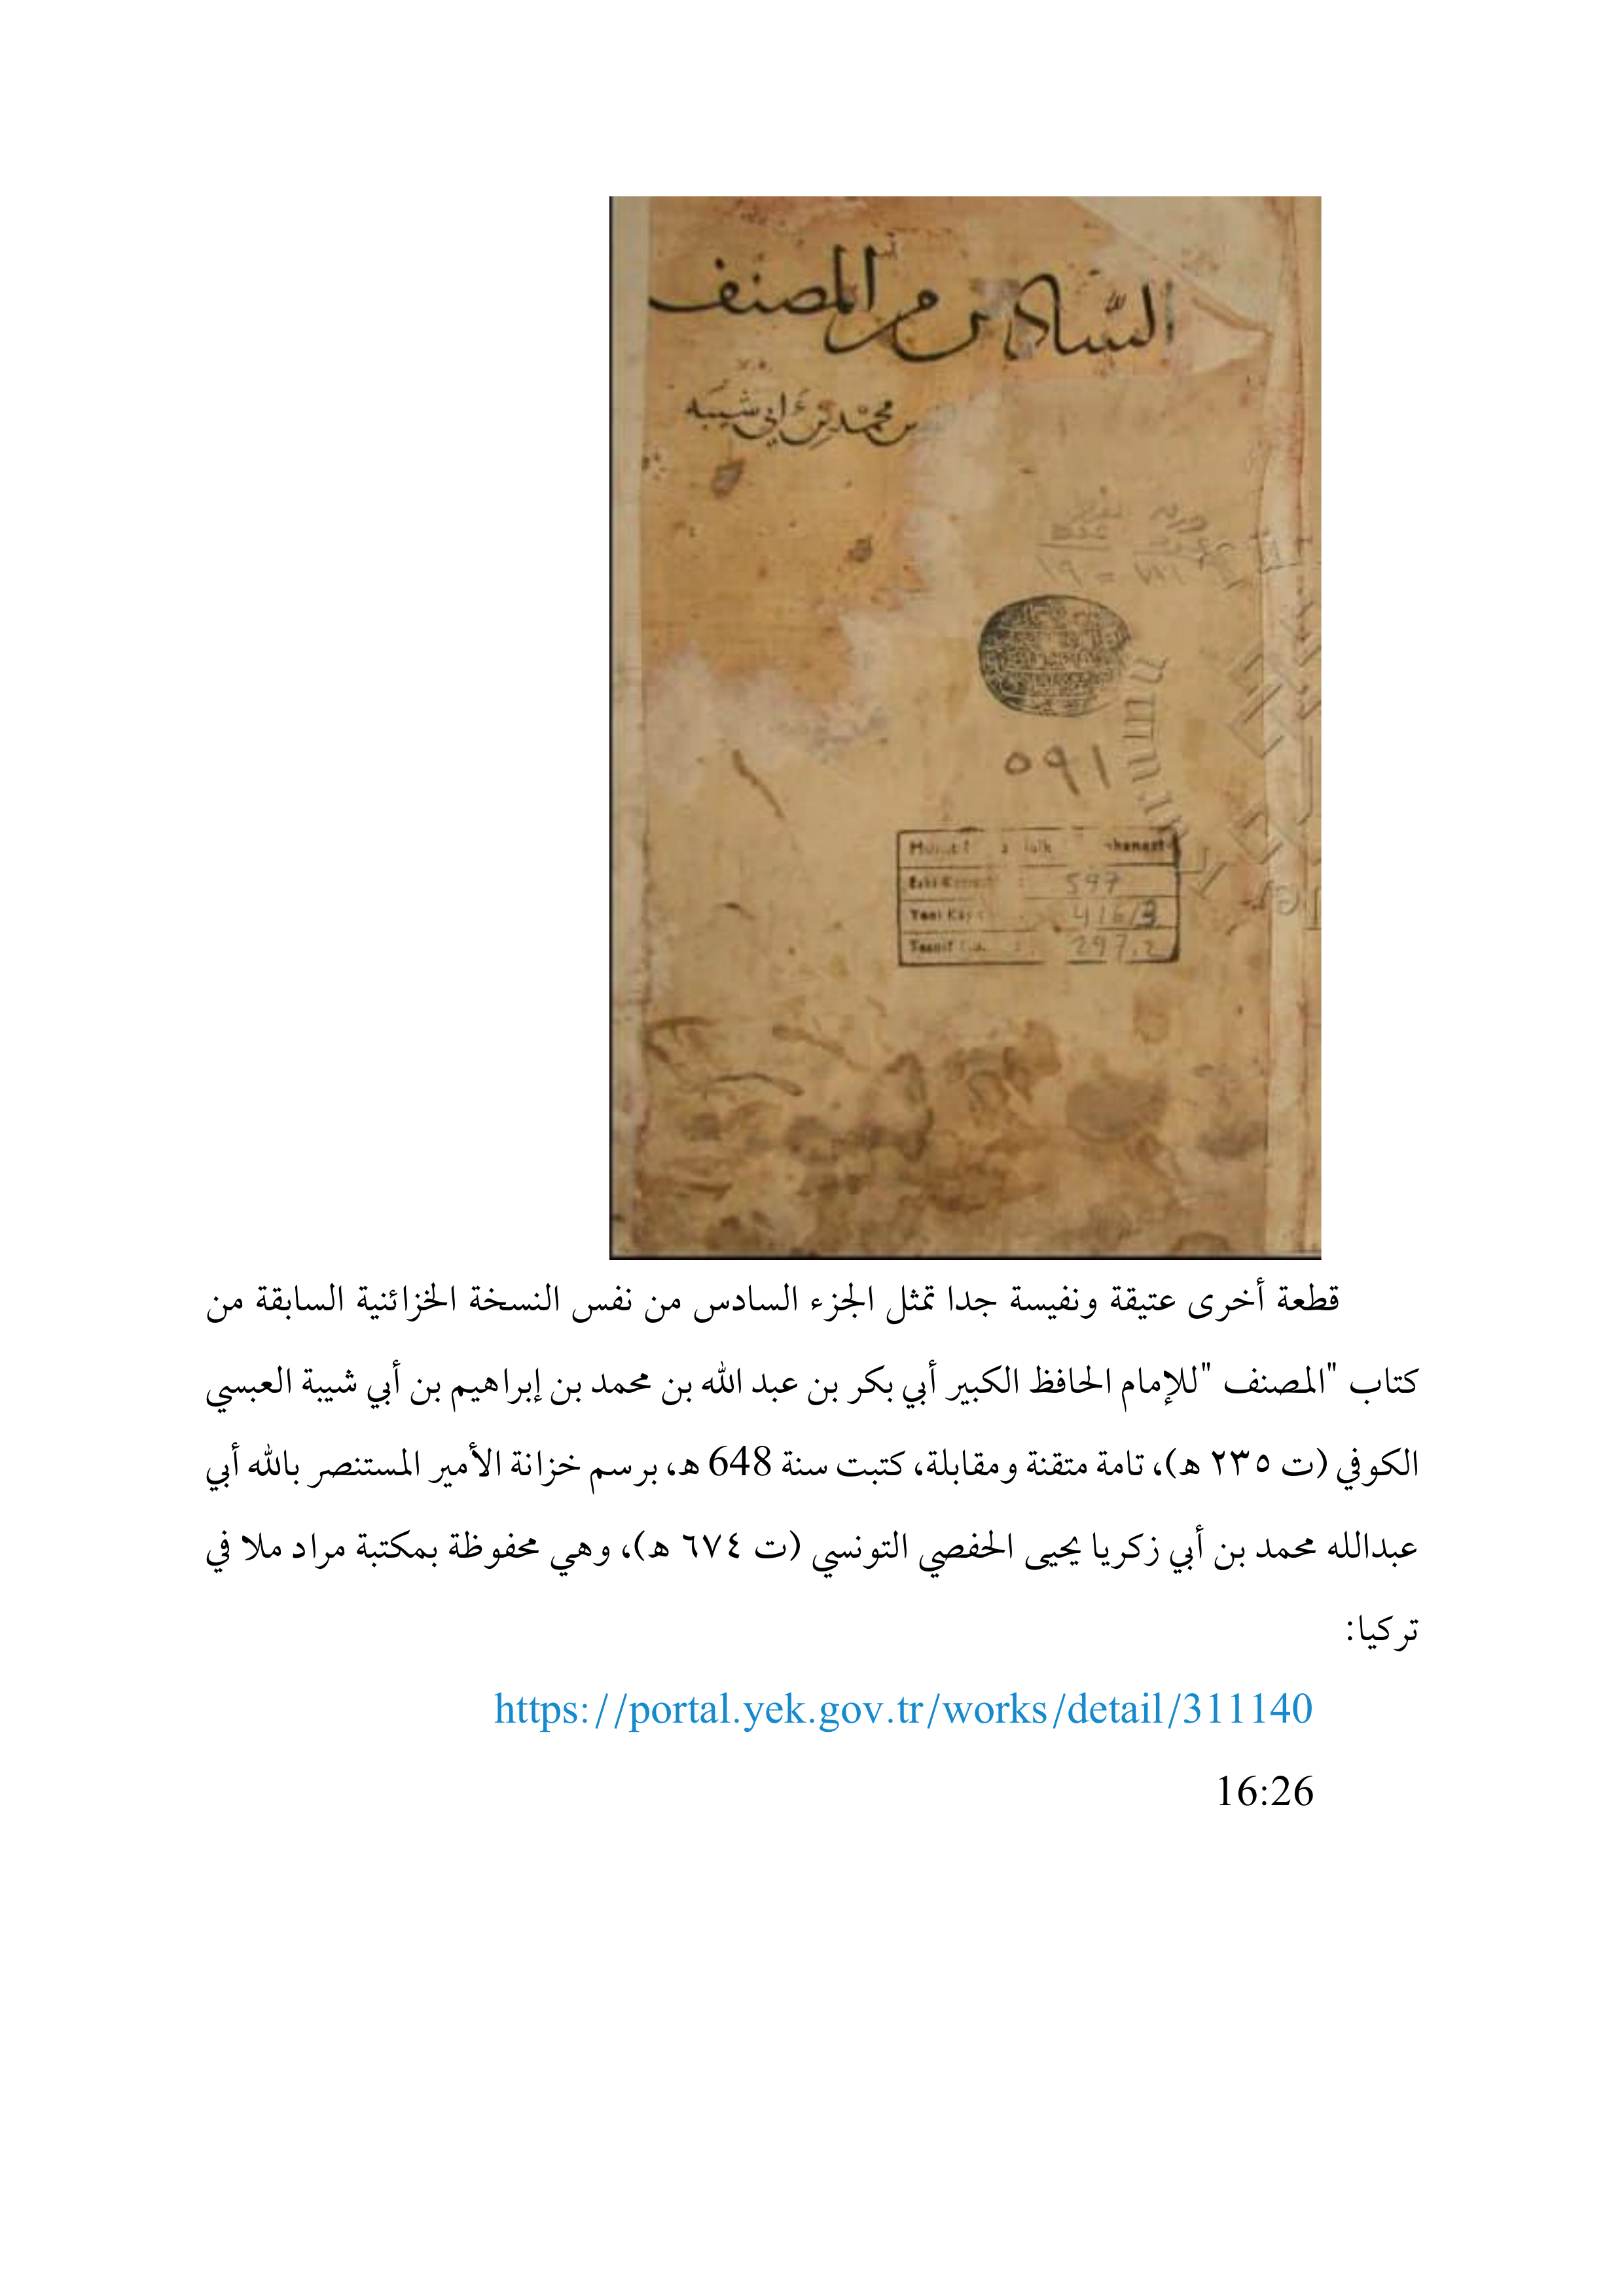 السادس من المصنف
بن محمد بن أبي شيبه
٥٩١
597
416/3
297.2
قطعة أخرى عتيقة ونفيسة جدا تمثل الجزء السادس من نفس النسخة الخزائنية السابقة من
كتاب "المصنف "للإمام الحافظ الكبير أبي بكر بن عبد الله بن محمد بن إبراهيم بن أبي شيبة العبسي
الكوفي (ت ٢٣٥ هـ)، تامة متقنة ومقابلة، كتبت سنة 648 هـ، برسم خزانة الأمير المستنصر بالله أبي
عبدالله محمد بن أبي زكريا يحيى الحفصي التونسي (ت ٦٧٤ هـ)، وهي محفوظة بمكتبة مراد ملا في
تركيا:
https://portal.yek.gov.tr/works/detail/311140
16:26